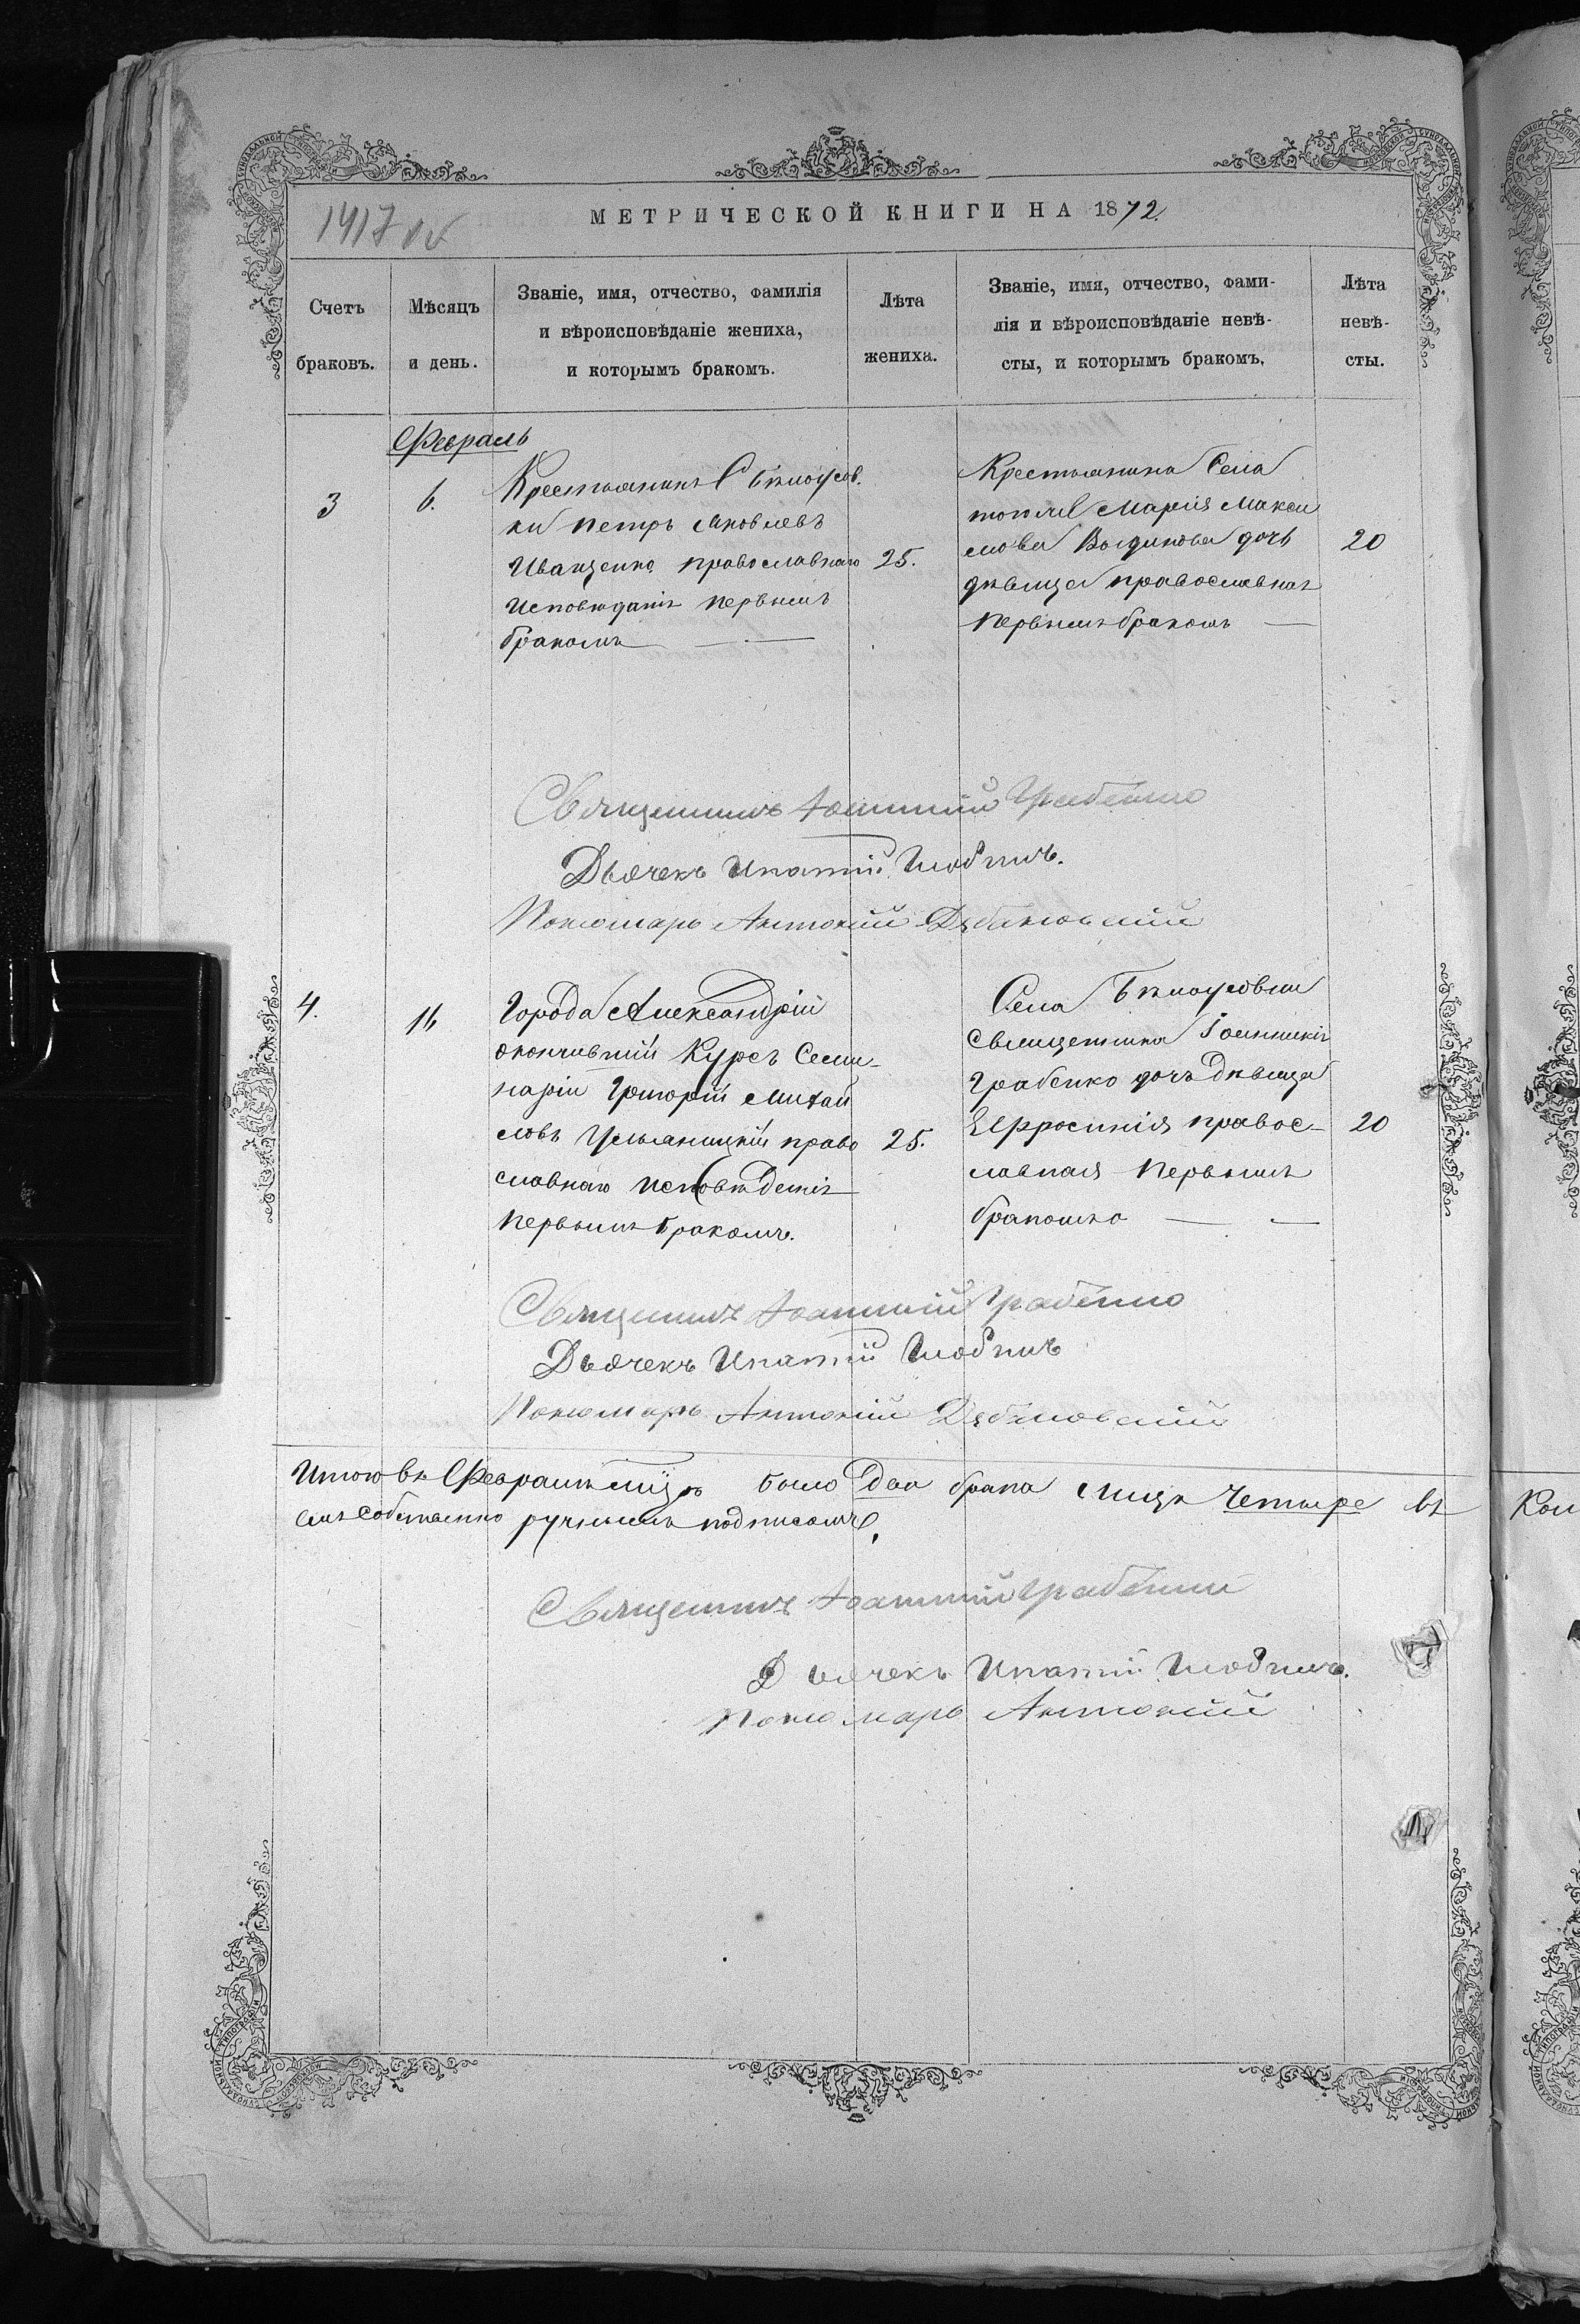 1417 об
МЕТРИЧЕСКОЙ КНИГИ НА 1872.
Счетъ браковъ.
Мѣсяцъ и день.
Званіе, имя, отчество, фамилія
и вѣроисповѣданіе жениха,
и которымъ бракомъ.
Лѣта жениха.
Званіе, имя, отчество, фами-
лія и вѣроисповѣданіе невѣ-
сты, и которымъ бракомъ.
Лѣта невѣ-
сты.
Февраль
3
6.
Крестьянинъ С Бѣлоусов.
ки Петръ Яковлевъ
Иващенко православнаго
Исповѣданія первымъ
бракомъ
25.
Крестьянина Села
Марія Макси
мова дочь
дѣвица православная
первымъ бракомъ
20
Священникъ Іоанникій Грабенко
Дьячекъ Ипатій
Пономарь Антоній
4.
11
Города Александріи
окончившій Курсъ Семи-
наріи Григорій Михай
ловъ право
славнаго исповѣданія
первымъ бракомъ.
25.
Села Бѣлоусовки
Священника Іоанникія
Грабенко дочь дѣвица
Ефросинія правос-
лавная первымъ
бракомъ
20
Священникъ Іоанникій Грабенко
Дьячекъ Ипатій
Пономарь Антоній
Итого въ Февралѣ мцѣ было два брака лицъ четыре въ
емъ собственно ручнымъ подписомъ.
Священникъ Іоанникій Грабенко
Дьячекъ Ипатій
Пономарь Антоній